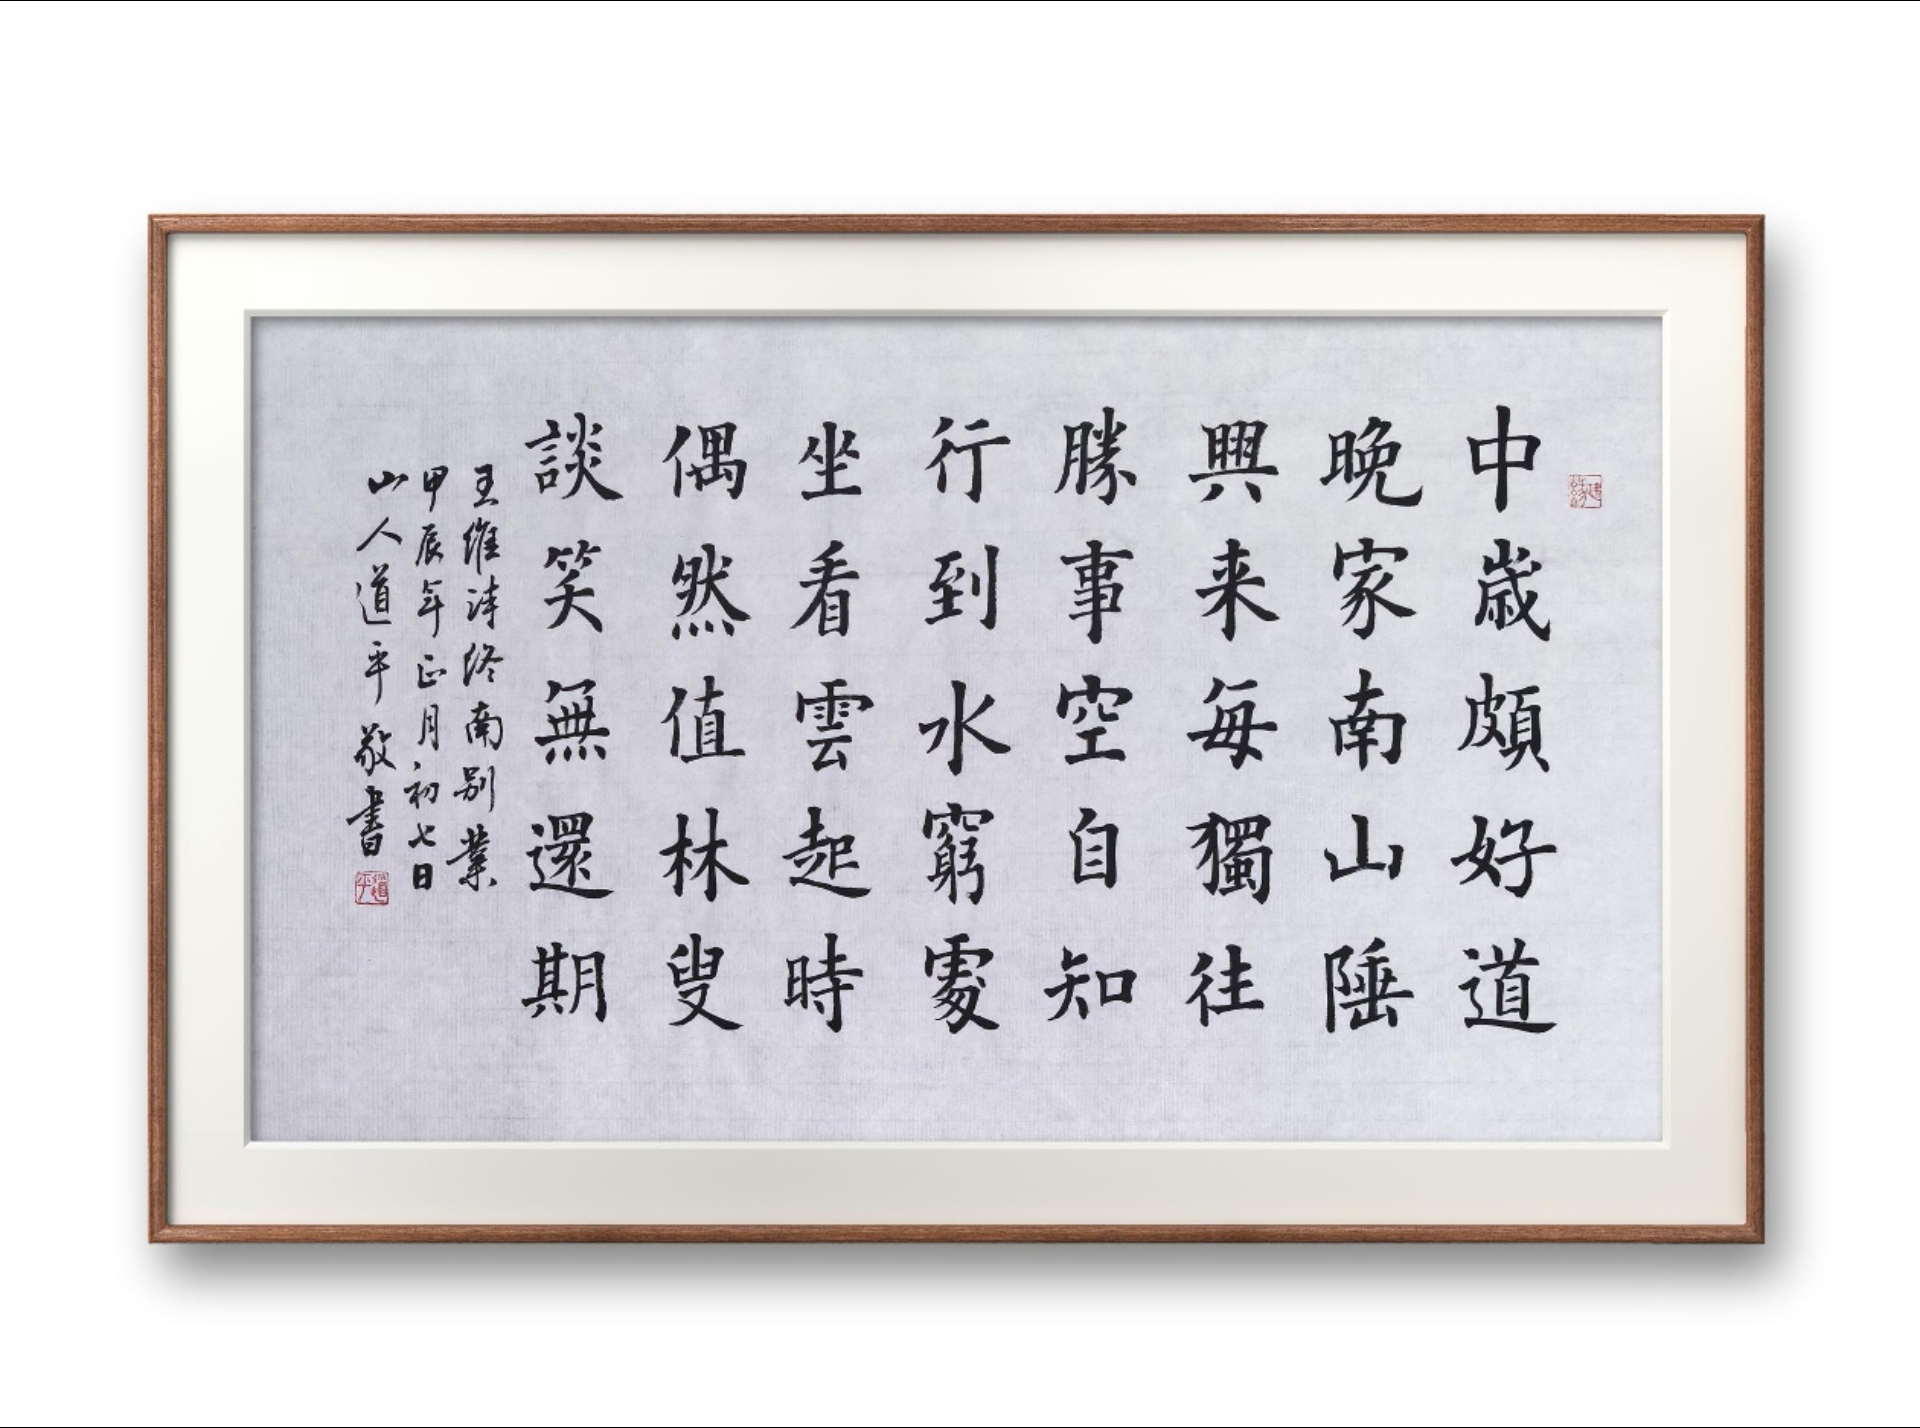 中歲頗好道
晚家南山陲
興来每獨往
勝事空自知
行到水窮處
坐看雲起時
偶然值林叟
談笑無還期
王維詩終南别業
甲辰年正月初七日
山人道平敬書
道平